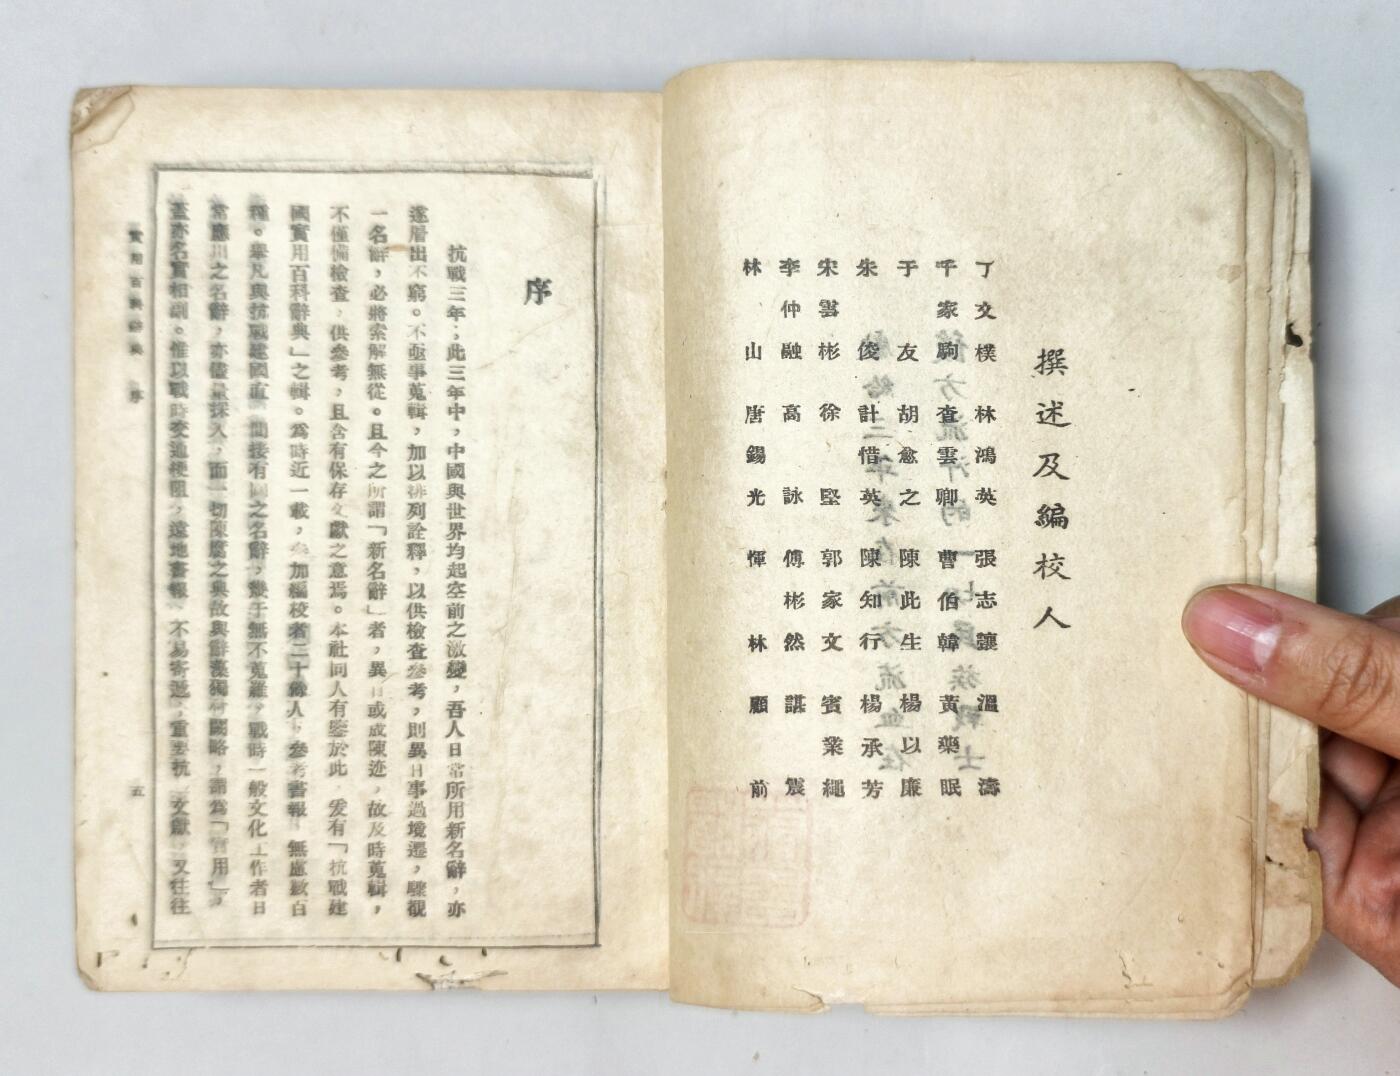 撰述及編校人
丁文樸 林鴻英 張志讓 溫濤
千家駒 查雲卿 曹伯韓 黃藥眠
于友 胡愈之 陳此生 楊以廉
朱俊 計惜英 陳知行 楊承芳
宋雲彬 徐堅 郭家文 賓業繩
李仲融 高詠 傅彬然 諶震
林山 唐錫光 惲林 顧前
序
抗戰三年；此三年中，中國與世界均起空前之激變，吾人日常所用新名辭，亦
遂層出不窮。不亟事蒐輯，加以排列詮釋，以供檢查參考，則異日事過境遷，驟覩
一名辭，必將索解無從。且今之所謂「新名辭」者，異日或成陳迹，故及時蒐輯，
不僅備檢查，供參考，且含有保存文獻之意焉。本社同人有鑒於此，爰有「抗戰建
國實用百科辭典」之輯。爲時近一載，參加編校者二十餘人，參考書報，無慮數百
種。舉凡與抗戰建國直間接有關之名辭，幾于無不蒐羅，戰時一般文化工作者日
常應用之名辭，亦儘量採入，而一切陳腐之典故與辭藻獨付闕略，謂爲「實用」，
蓋亦名實相副。惟以戰時交通梗阻，遠地書報，不易寄遞，重要抗文獻，又往往
實用百科辭典 序 五